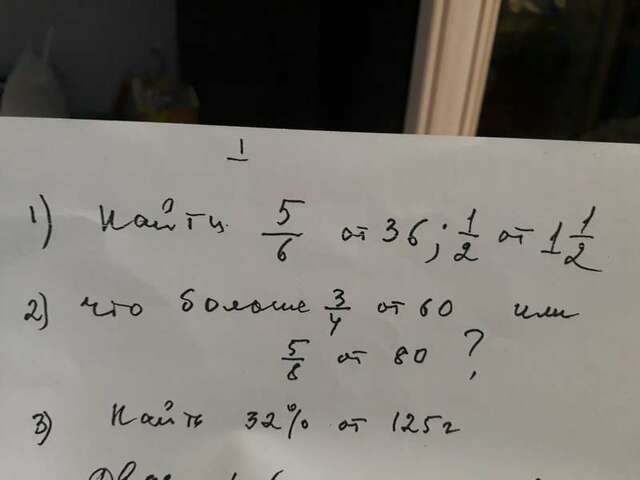 1
1) Найти 5/6 от 36; 1/2 от 1 1/2
2) что больше 3/4 от 60 или
5/8 от 80 ?
3) Найти 32% от 125г